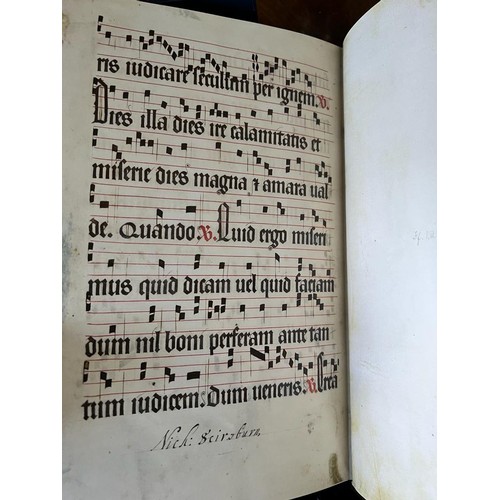 ris iudicare seculum per ignem. V.
Dies illa dies ire calamitatis et
miserie dies magna & amara ual
de. Quando. V. Quid ergo miseri
mus quid dicam uel quid faciam
dum nil boni perferam ante tan
tum iudicem. Dum ueneris. V.
Nich: